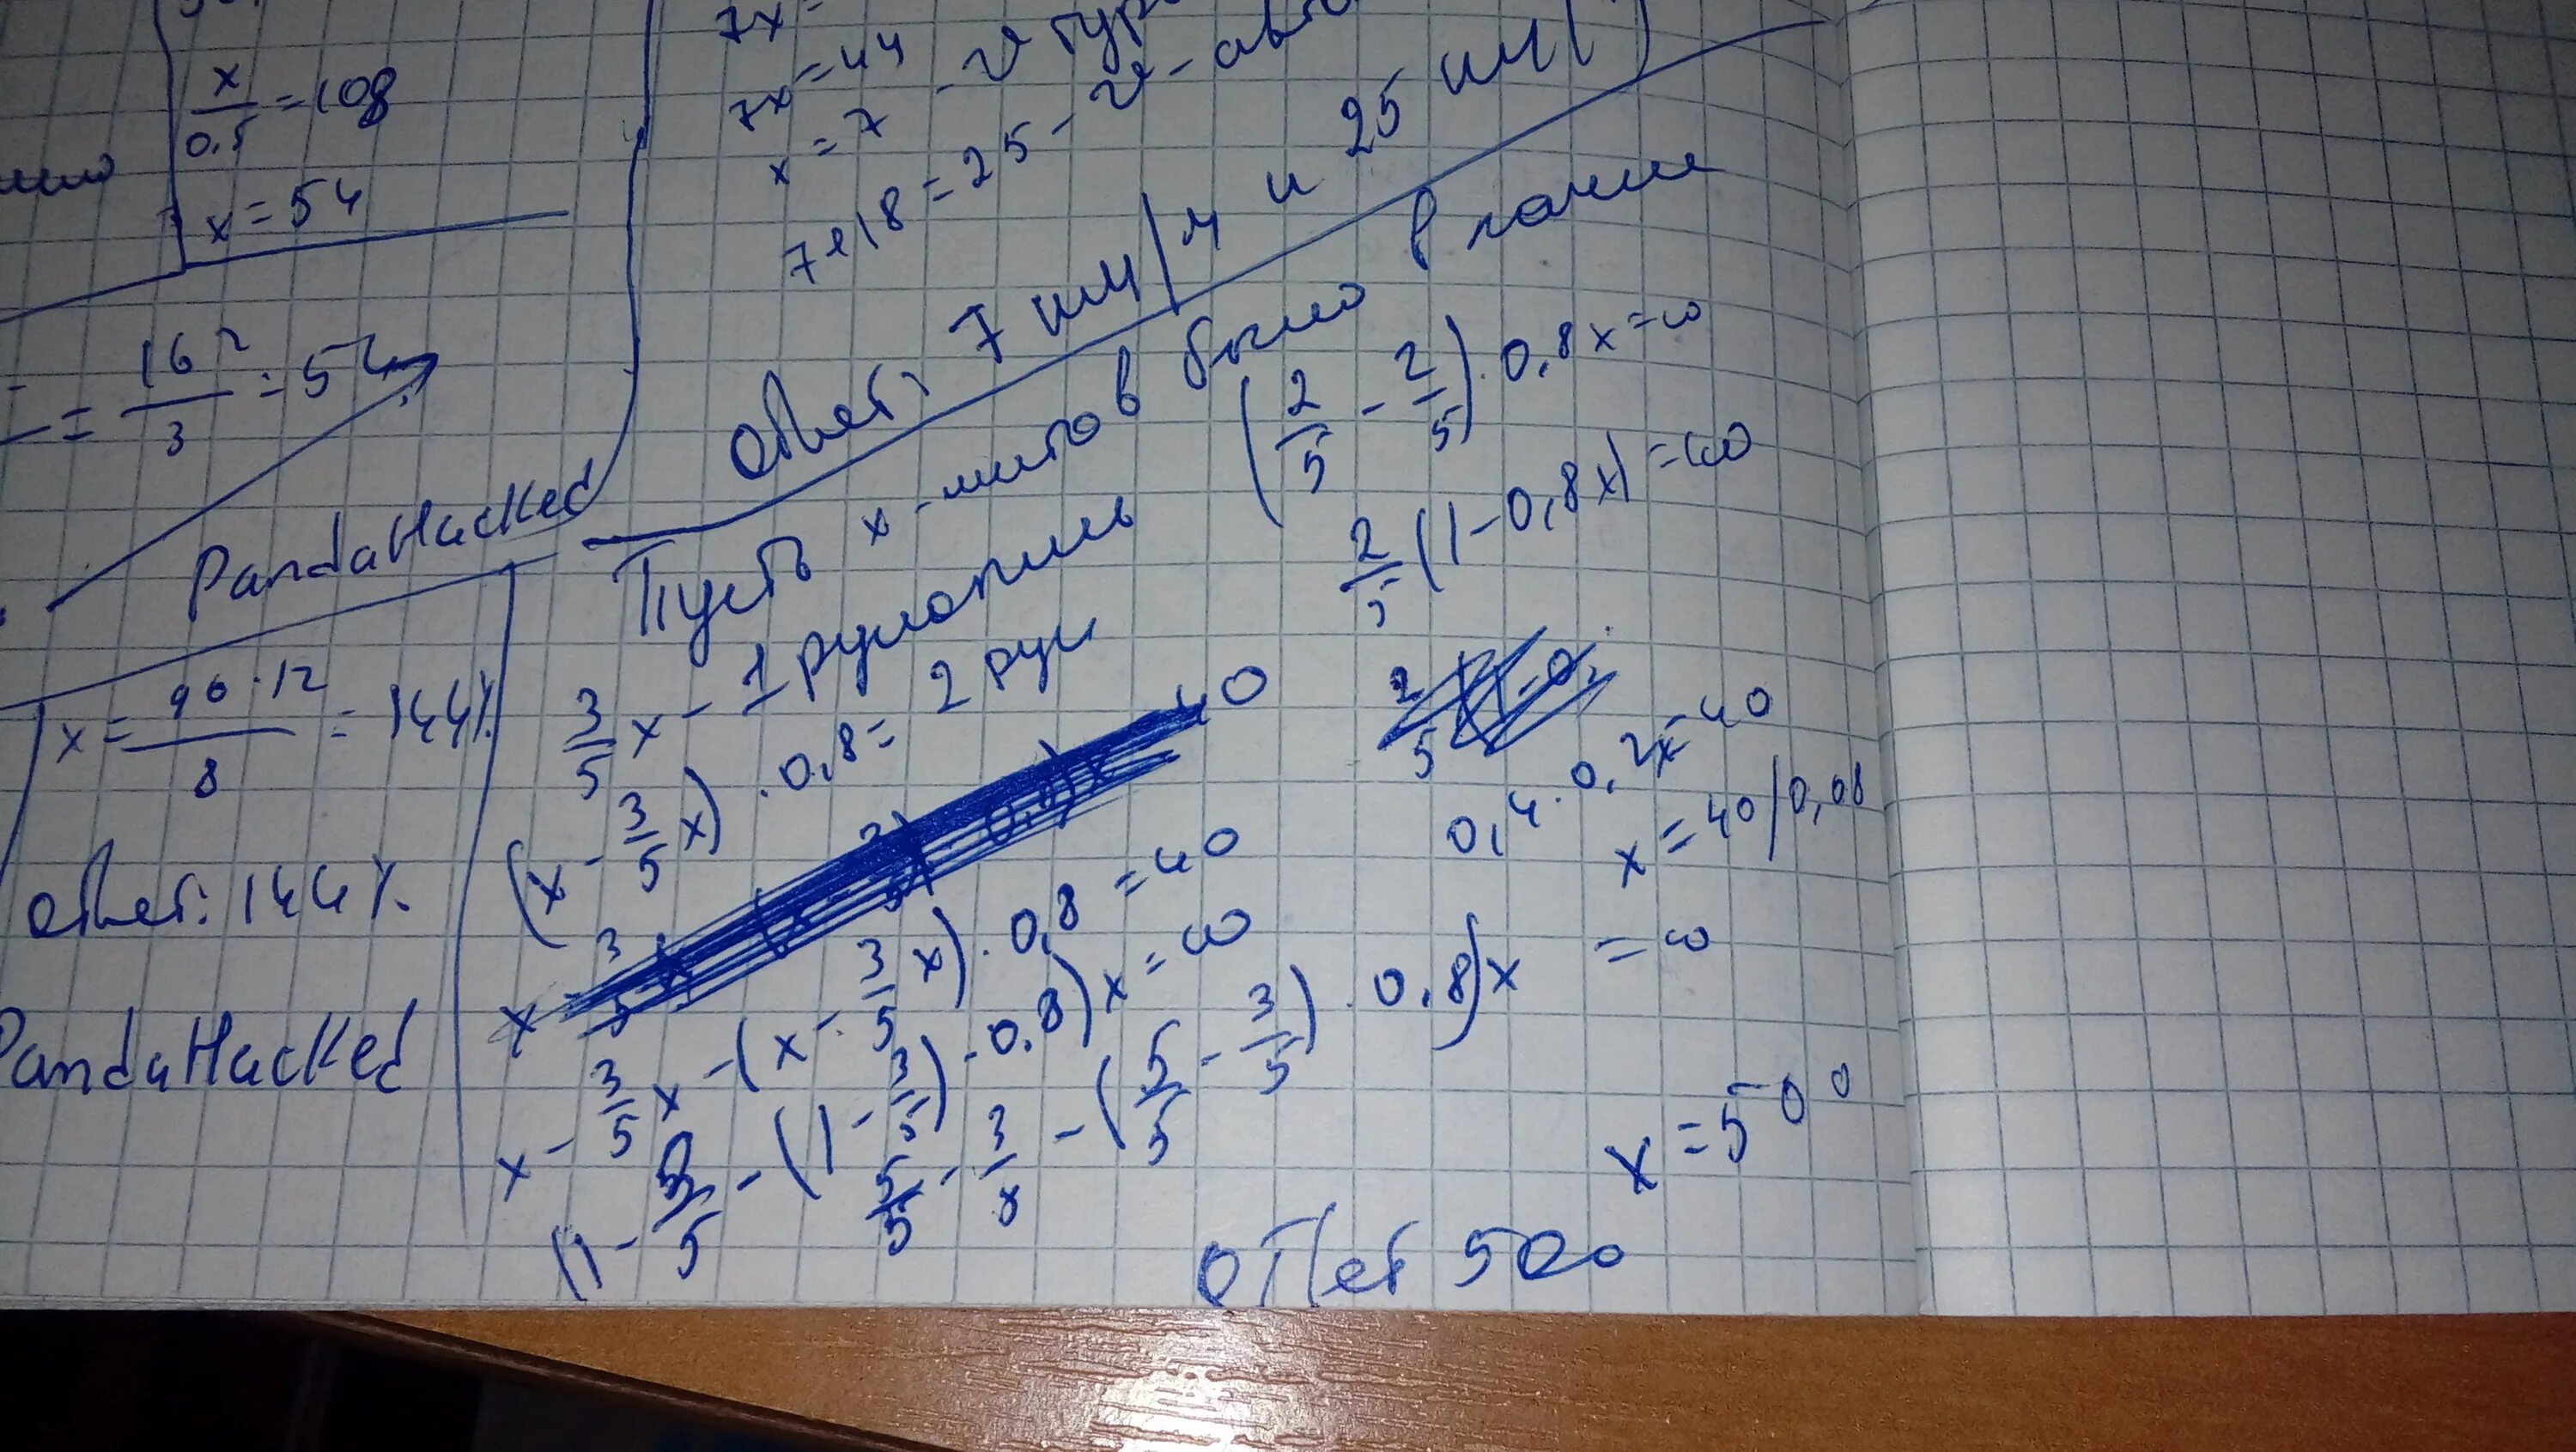 x/0,5 = 108
x = 54
= 162/3 = 54
PandaHacked
x = 96·12/8 = 144%
Ответ: 144%.
PandaHacked
7x=
7x=44
x = 7 - v
7+18 = 25 - v -
Ответ: 7 км/ч и 25 км/
Пусть x - листов было в пачке
3/5 x - 1 рукопись
(x - 3/5 x) · 0,8 = 2 рук
x - 3/5 x - (x - 3/5 x) · 0,8 = 40
(1 - 3/5 - (1 - 3/5) · 0,8) x = 40
5/5 - 3/5 - (5/5 - 3/5) · 0,8) x = 40
(2/5 - 2/5) · 0,8 x = 40
2/5 (1 - 0,8 x) = 40
0,4 · 0,2x = 40
x = 40/0,08
x = 500
Ответ 500